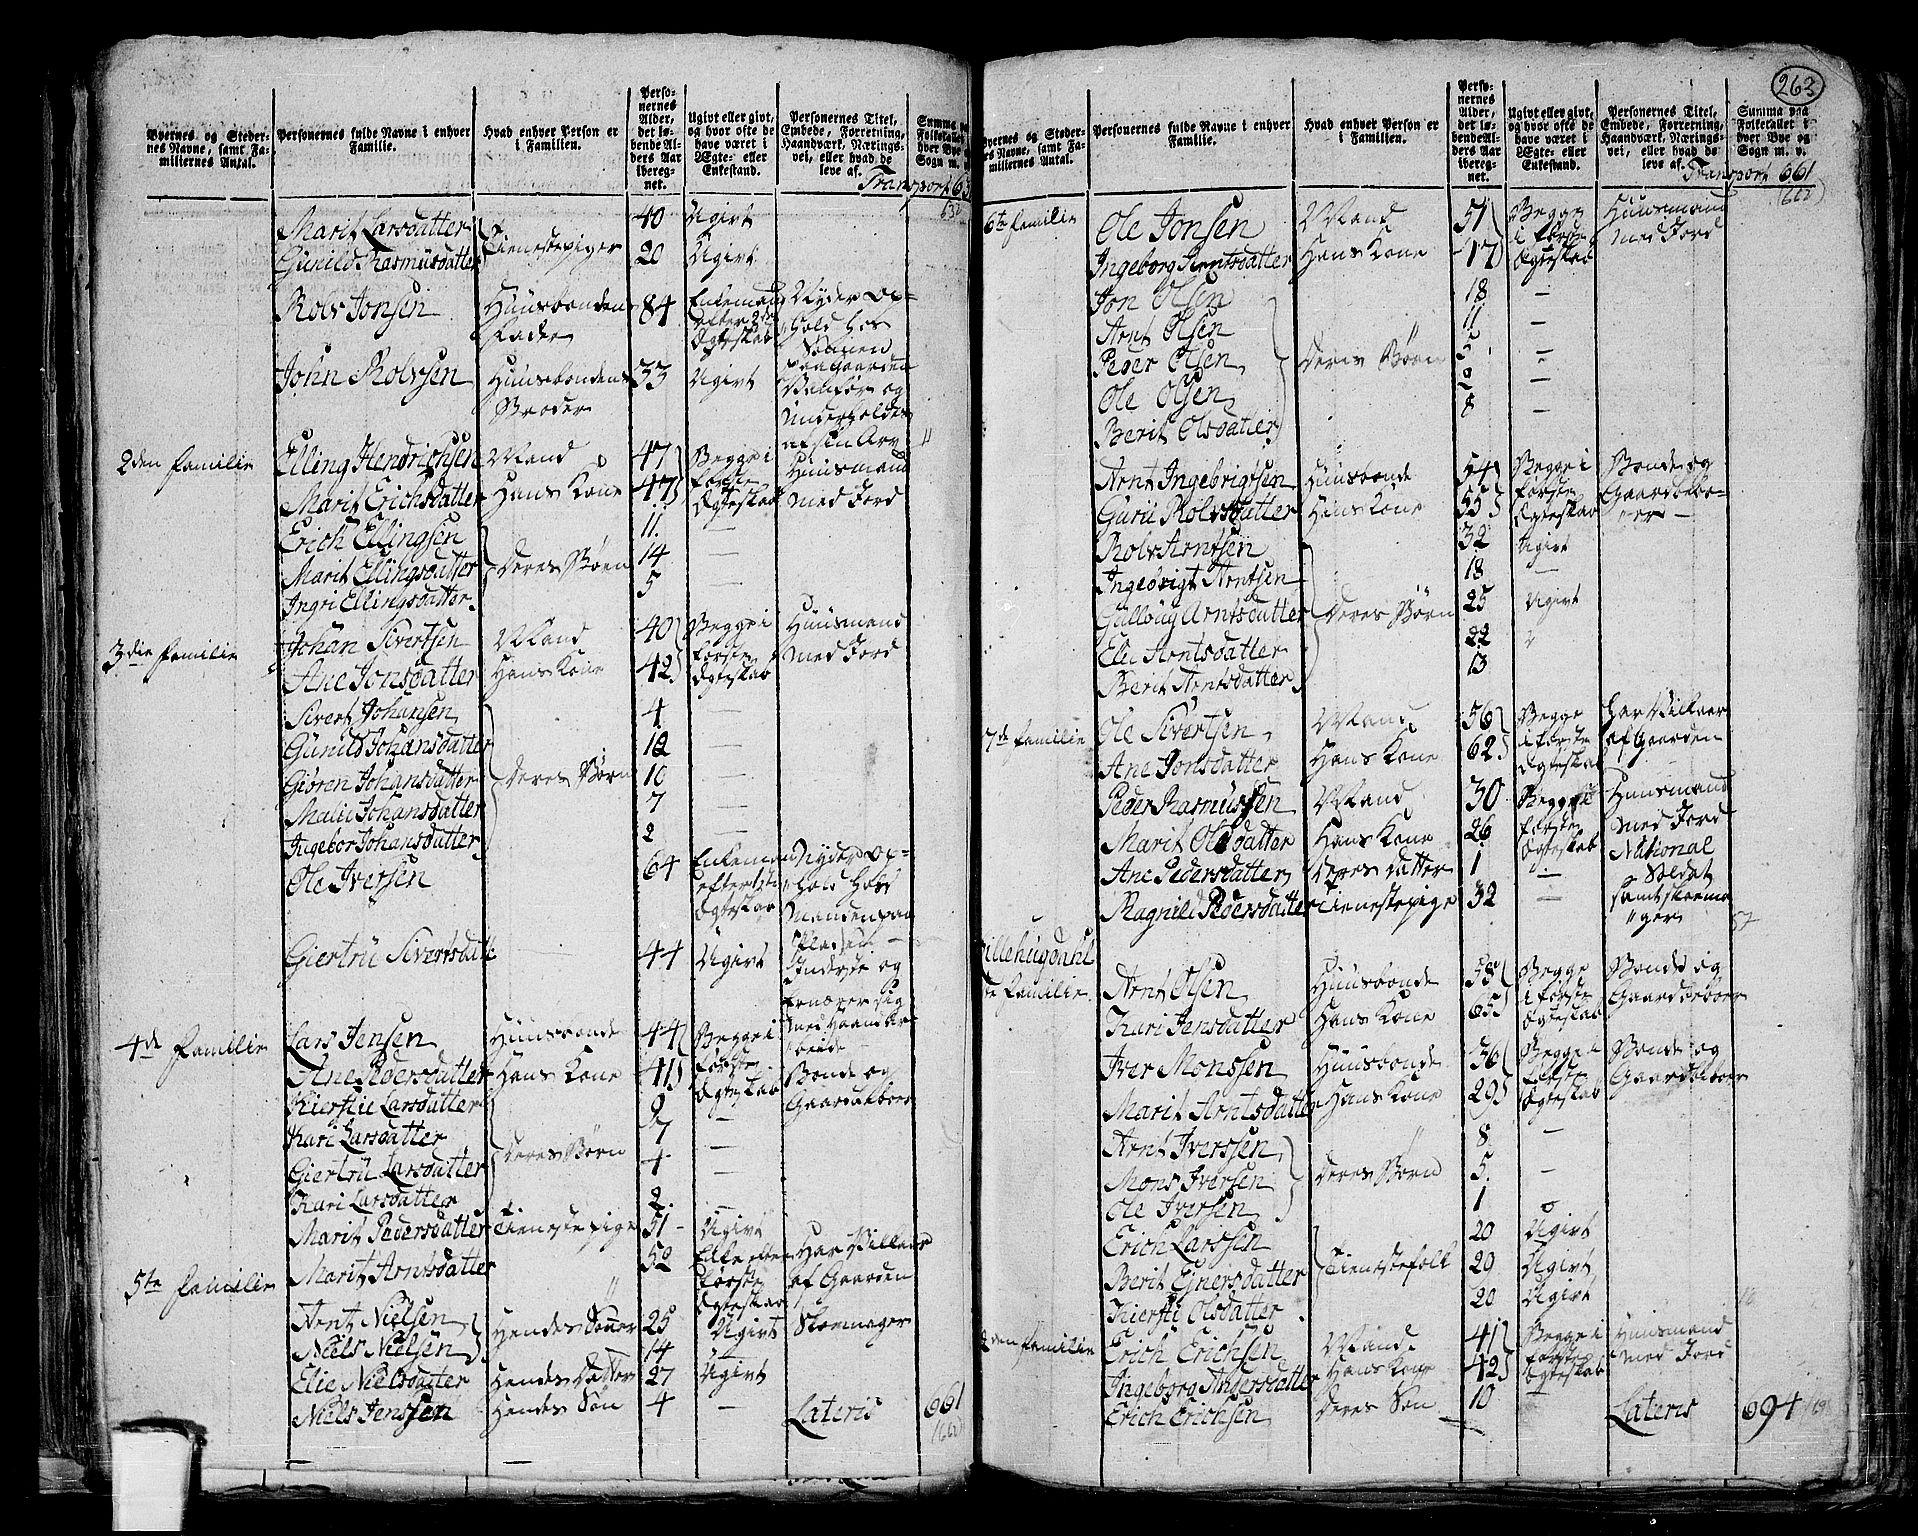 263
Byernes og Steder-
nes Navne, samt Fa-
miliernes Antal.
Personernes fulde Navne i enhver
Familie.
Hvad enhver Person er
i Familien.
Perso-
nernes
Alder,
det lø-
bende Al-
ders Aar
ibereg-
net.
Ugivt eller givt,
og hvor ofte de
have været i
Ægte- eller
Enkestand.
Personernes Titel,
Embede, Forretning,
Haandværk, Nærings-
vei, eller hvad de
leve af.
Summa paa
Folketallet i
hver Bye og
Sogn m. v.
Transport
Marit Larsdatter Tienestepiger 40 Ugivt
Gunild Rasmusdatter 20 Ugivt
Rolv Jonsen Huusbondens Fader 84 Enkemand efter 2de Ægteskab Nyder Op-
hold hos Sønnen paa gaarden
John Rolvsen Huusbondens Broder 33 Ugivt Vanfør og underholdes af sin Arv
2den Familie Elling Hendrichsen Mand 47 Begge i første Ægteskab Huusmand med Jord
Marit Erichsdatter Hans Kone 47
Erich Ellingsen 11. —
Marit Ellingsdatter Deres Børn 14 —
Ingri Ellingsdatter 5 —
3die Familie Johan Sivertsen Mand 40 Begge i første Ægteskab Huusmand med Jord
Ane Jonsdatter Hans Kone 42
Sivert Johansen 4 —
Gunild Johansdatter 12 —
Giøren Johansdatter Deres Børn 10 —
Malii Johansdatter 7 —
Ingebor Johansdatter 2 —
Ole Iversen 64 Enkemand efter 1ste Ægteskab Nyder Op-
hold hos Manden paa Pladsen
Giertru Sivertsdatt: 44 Ugivt Inderste og ernærer sig med Haandar-
beide
4de Familie Lars Jensen Huusbonde 44 Begge i første Ægteskab Bonde og Gaardbeboer
Ane Pedersdatter Hans Kone 41
Kierstie Larsdatter 9 —
Kari Larsdatter 7 —
Giertru Larsdatter Deres Børn 4 —
Kari Larsdatter 2. —
Marit Pedersdatter Tienestepige 51 Ugivt
5te Familie Marit Arntsdatter " 52 Enke efter første Ægteskab Har Vilkaar af Gaarden
Arnt Nielsen Hendes Sønner 25 Ugivt Skoemager
Niels Nielsen 14 —
Elie Nielsdatter Hendes Datter 27 Ugivt
Niels Jenssen Hendes Søn 4 —
Lateris 661
Byernes og Steder-
nes Navne, samt Fa-
miliernes Antal.
Personernes fulde Navne i enhver
Familie.
Hvad enhver Person er
i Familien.
Perso-
nernes
Alder,
det lø-
bende Al-
ders Aar
ibereg-
net.
Ugivt eller givt,
og hvor ofte de
have været i
Ægte- eller
Enkestand.
Personernes Titel,
Embede, Forretning,
Haandværk, Nærings-
vei, eller hvad de
leve af.
Summa paa
Folketallet i
hver Bye og
Sogn m. v.
Transport 661
6te Familie Ole Jonsen Mand 51 Begge i første Ægteskab Huusmand med Jord
Ingeborg Arntsdatter Hans Kone 47
Jon Olsen 18 —
Arnt Olsen 11 —
Peder Olsen Deres Børn —
Ole Olsen —
Berit Olsdatter 8 —
Arnt Ingebrigtsen Huusbonde 54 Begge i første Ægteskab Bonde og Gaardbebo-
er
Guru Rolvsdatter Hans Kone 55
Rolv Arntsen 32 Ugivt
Ingebrigt Arntsen 18 —
Gulloug Arntsdatter Deres Børn 25 Ugivt
Eli Arntsdatter 22 "
Berit Arntsdatter 13
7de Familie Ole Sivertsen Mand 56 Begge i første Ægteskab har Vilkaar af Gaarden
Ane Jonsdatter Hans Kone 62
Peder Rasmussen Mand 30 Begge i første Ægteskab Huusmand med Jord National Soldat samt skoema-
ger
Marit Olsdatter Hans Kone 26
Ane Pedersdatter Deres Datter 1 —
Ragnild Pedersdatter Tienestepige 32 —
Lillehugdahl
Familie Arnt Olsen Huusbonde 58 Begge i første Ægteskab Bonde og Gaardbeboer
Kari Jensdatter Hans Kone 65
Iver Monssen Huusbonde 36 Begge i første Ægteskab Bonde og Gaardbeboer
Marit Arntsdatter Hans Kone 29
Arnt Iverssen 8 —
Mons Iversen Deres Børn 5. —
Ole Iversen 1
Erich Larssen 20 Ugivt
Berit Ejnersdatter Tienestefolk 20 Ugivt
Kiersti Olsdatter 20 Ugivt
2den Familie Erich Erichsen Mand 41 Begge i første Ægteskab Huusmand med Jord
Ingeborg Andersdatter Hans Kone 42
Erich Erichsen Deres Søn 10 —
Lateris 694